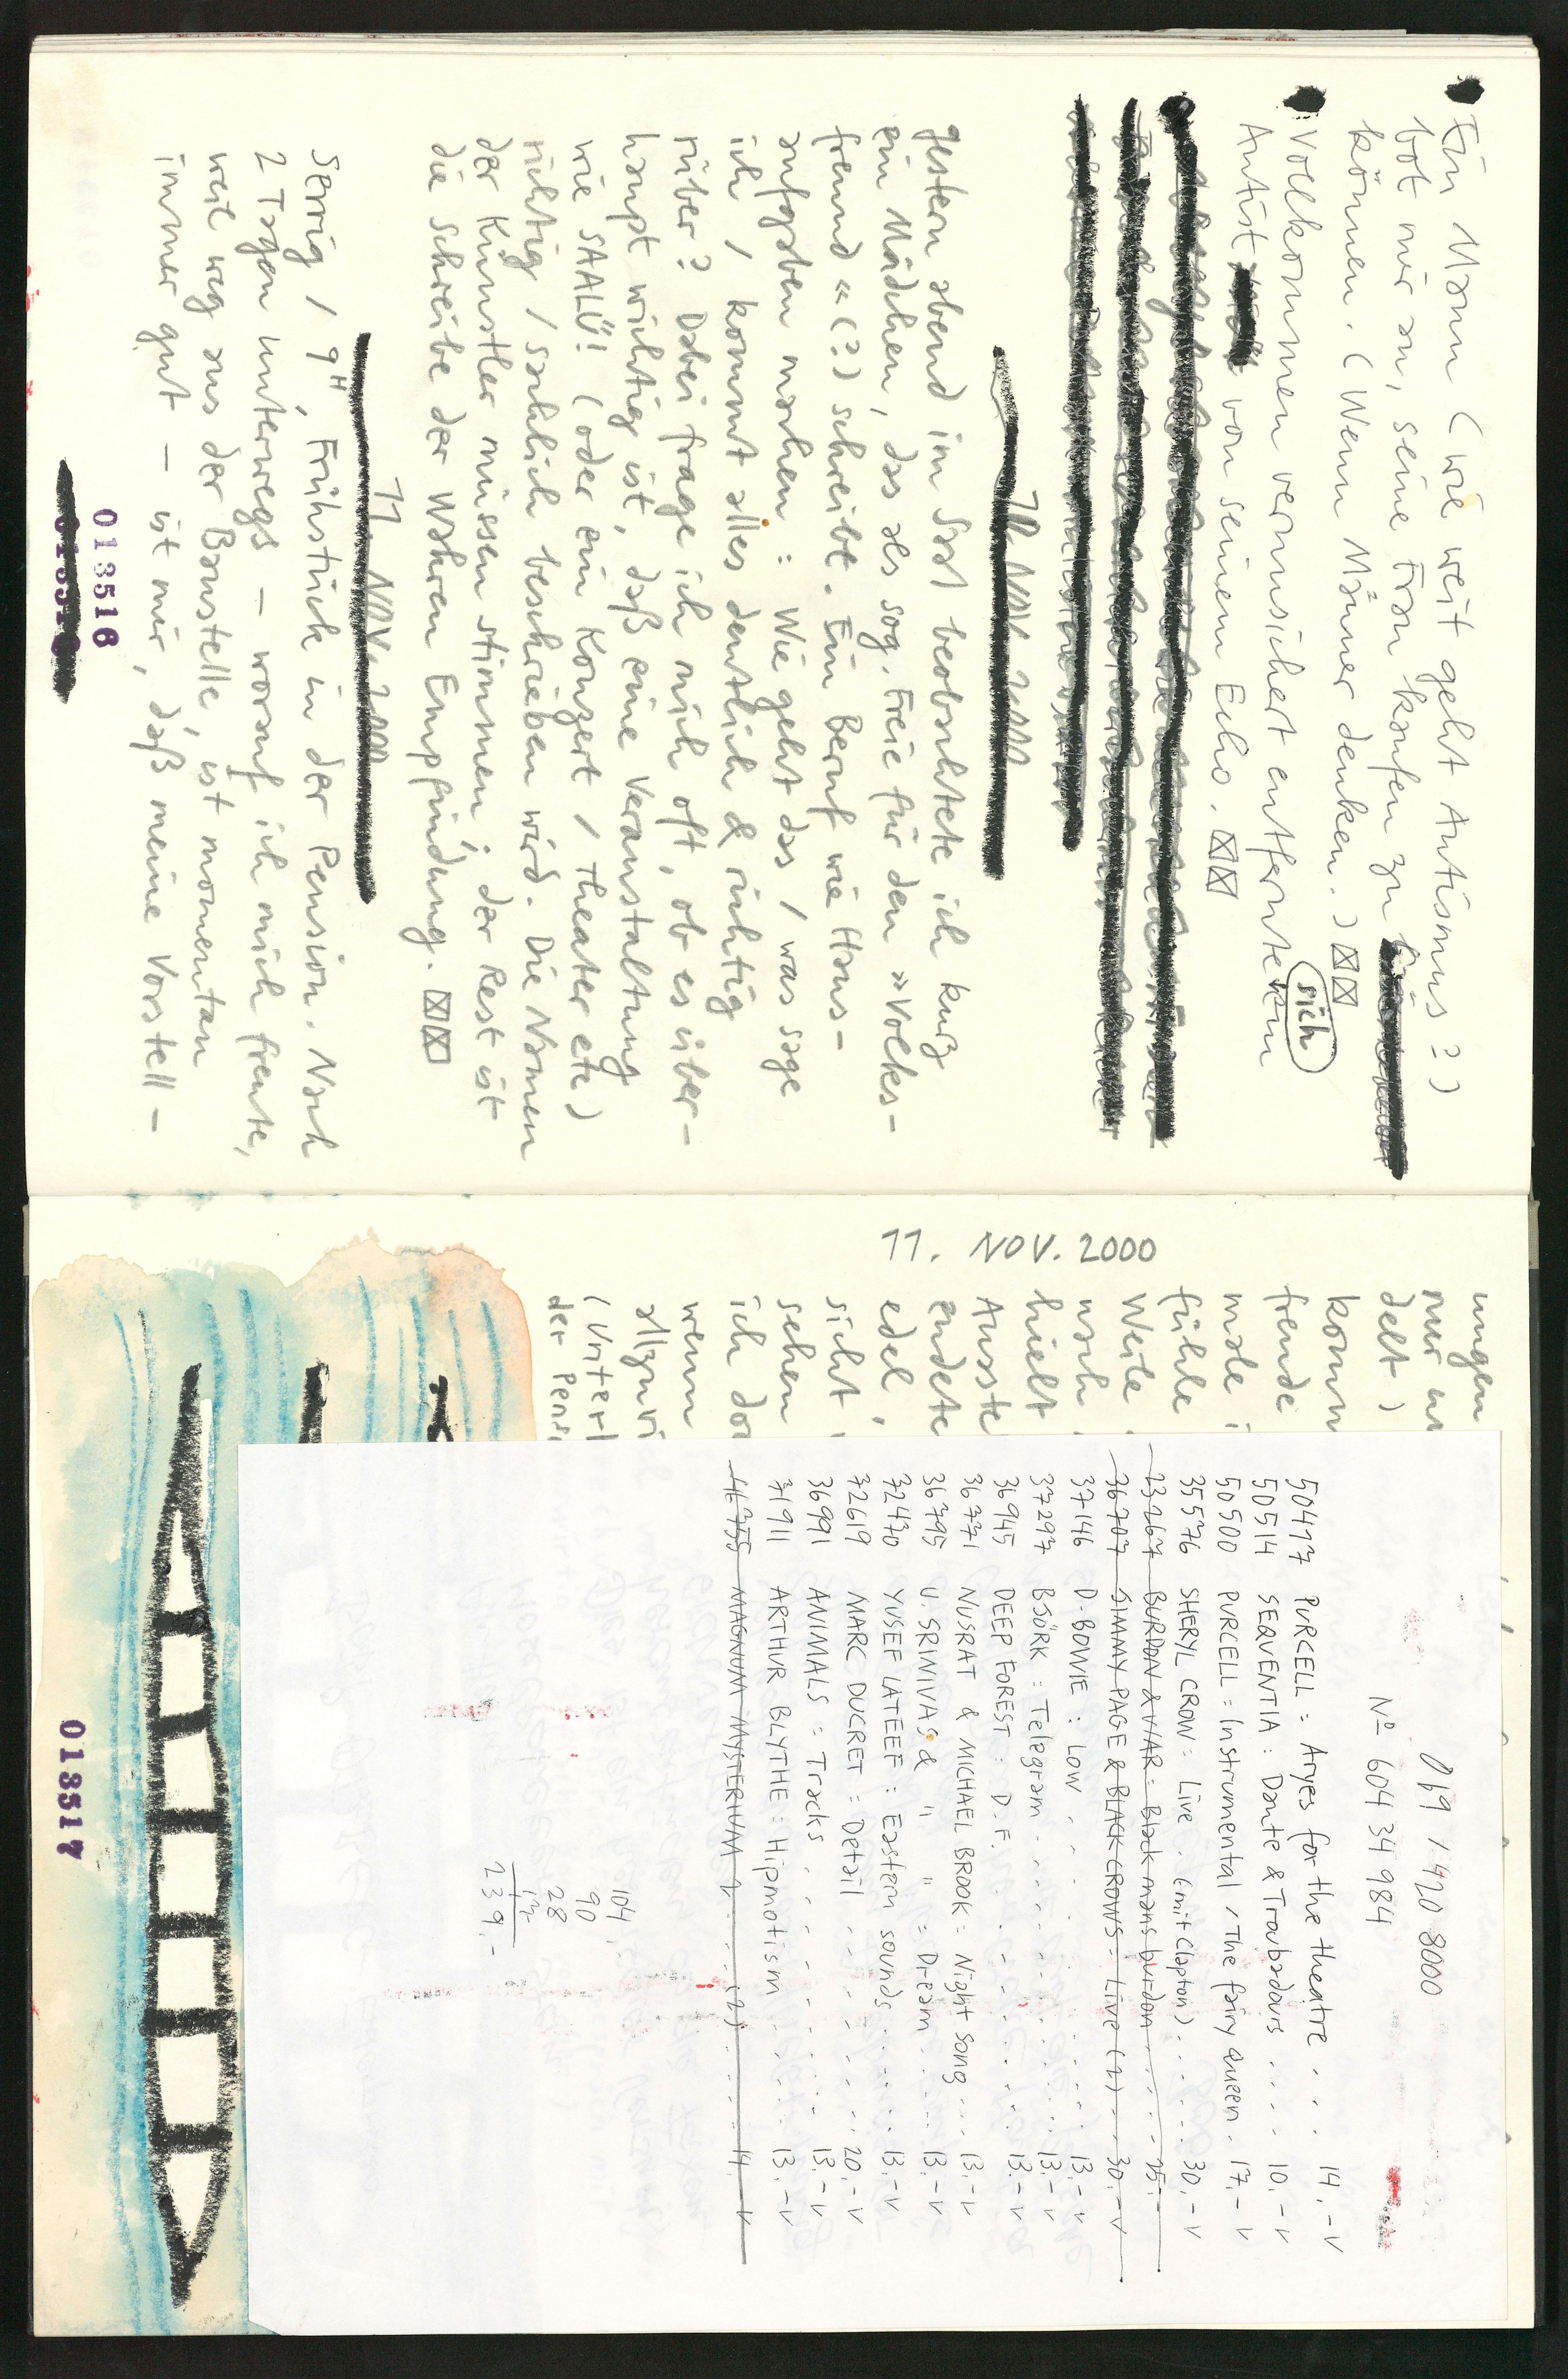 Ein Mann (wie weit geht Autismus?)
bot mir an, seine Frau kaufen zu
können. (Wenn Männer denken.)
Vollkommen verunsichert entfernte ein
sich
Autist von seinem Echo.
10. NOV. 2000
gestern abend im Saal beobachtete ich kurz
ein Mädchen, das als sog. Freie für den »Volks-
freund« (?) schreibt. Ein Beruf wie Haus-
aufgaben machen: Wie geht das / was sage
ich / kommt alles deutlich & richtig
rüber? Dabei frage ich mich oft, ob es über-
haupt wichtig ist, daß eine Veranstaltung
wie SAALÜ! (oder ein Konzert / Theater etc)
richtig / sachlich beschrieben wird. Die Namen
der Künstler müssen stimmen; der Rest ist
die Schreibe der wahren Empfindung.
11. NOV. 2000
Serrig / 9H, Frühstück in der Pension. Nach
2 Tagen unterwegs – worauf ich mich freute,
weil weg aus der Baustelle, ist momentan
immer gut – ist mir, daß meine Vorstell-
013516
11. NOV. 2000
ungen
nur
delt)
komm
freude
male i
fühle
Weile
nach
hielt
Ausste
endete
edel,
sicht
sehen
ich do
wenn
allzuvi
(Unterl
der Pens
069 / 420 8000
No 604 34 984
50477 PURCELL = Aryes for the theatre . . . 14.- v
50514 SEQUENTIA : Dante & Troubadours . . . . 10.- v
50500 PURCELL = Instrumental / The fairy Queen . 17.- v
35576 SHERYL CROW = Live . (mit Clapton) . . . . 30.- v
23267 BURDON & WAR = Black mans burdon . . . . 25.-
36707 JIMMY PAGE & BLACK CROWS = Live (2) . . 30.- v
37146 D. BOWIE : LOW . . . . . . . 13.- v
37297 BJÖRK = Telegram . . . . . . . 13.- v
36945 DEEP FOREST : D.F. . . . . . . 13.- v
36771 NUSRAT & MICHAEL BROOK = Night Song . . . 13.- v
36795 U. SRINIVAS & " " = Dream . . . . 13.- v
72470 YUSEF LATEEF : Eastern sounds . . . . . 13.- v
72619 MARC DUCRET = Detail . . . . . . 20.- v
36991 ANIMALS = Tracks . . . . . . . 13.- v
71911 ARTHUR BLYTHE : Hipmotism . . . . . 13.- v
46755 MAGNUM MYSTERIUM . . . . (2) . . . . 14.- v
104.-
90
28
17.-
239.-
013517